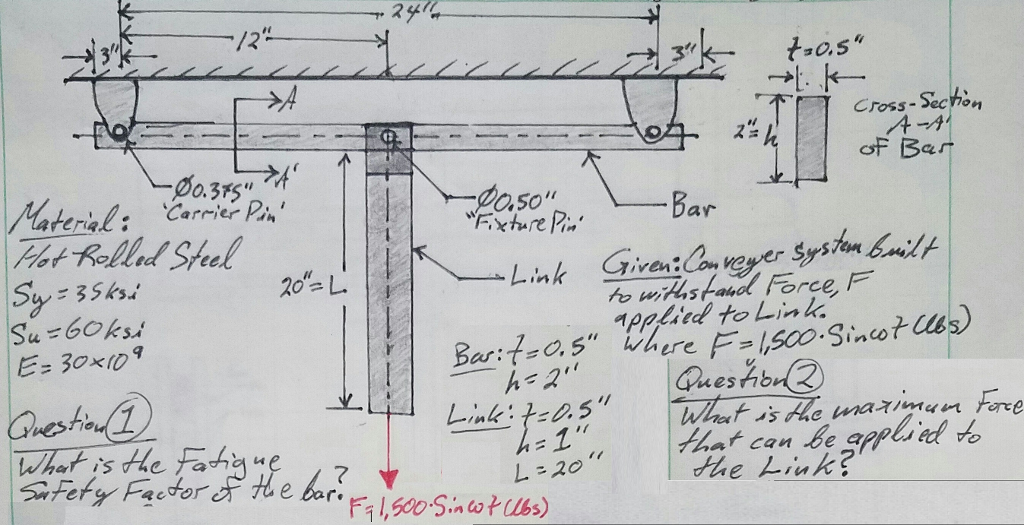 24"
12"
3"
3"
t=0.5"
A
A'
2"=h
Cross-Section
A-A'
of Bar
Ø0.375"
'Carrier Pin'
Ø0.50"
"Fixture Pin'
Bar
Link
20"=L
Material:
Hot Rolled Steel
Sy=35ksi
Su=60ksi
E=30x10⁹
Given: Conveyer System built
to withstand Force, F
applied to Link.
Where F=1,500·Sinωt (lbs)
Bar: t=0.5"
h=2"
Link: t=0.5"
h=1"
L=20"
Question ①
What is the Fatigue
Safety Factor of the bar?
Question ②
What is the maximum Force
that can be applied to
the Link?
F=1,500·Sinωt (lbs)